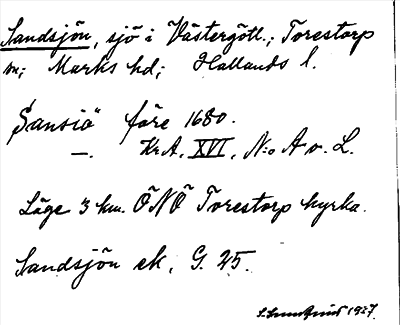 Sandsjön, sjö i Västergötl.; Torestorp
sn; Marks hd; Hallands l.
Sansiö före 1680.
—. Kr. A, XVI, N:o A v. L.
Läge 3 km. ÖNÖ Torestorp kyrka.
Sandsjön ek, G. 25.
1927